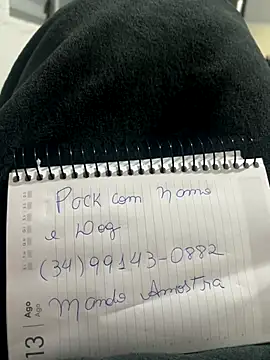 Pack com nome
e Dog
(34)99143-0882
Mando Amostra
13 | Ago
Ago